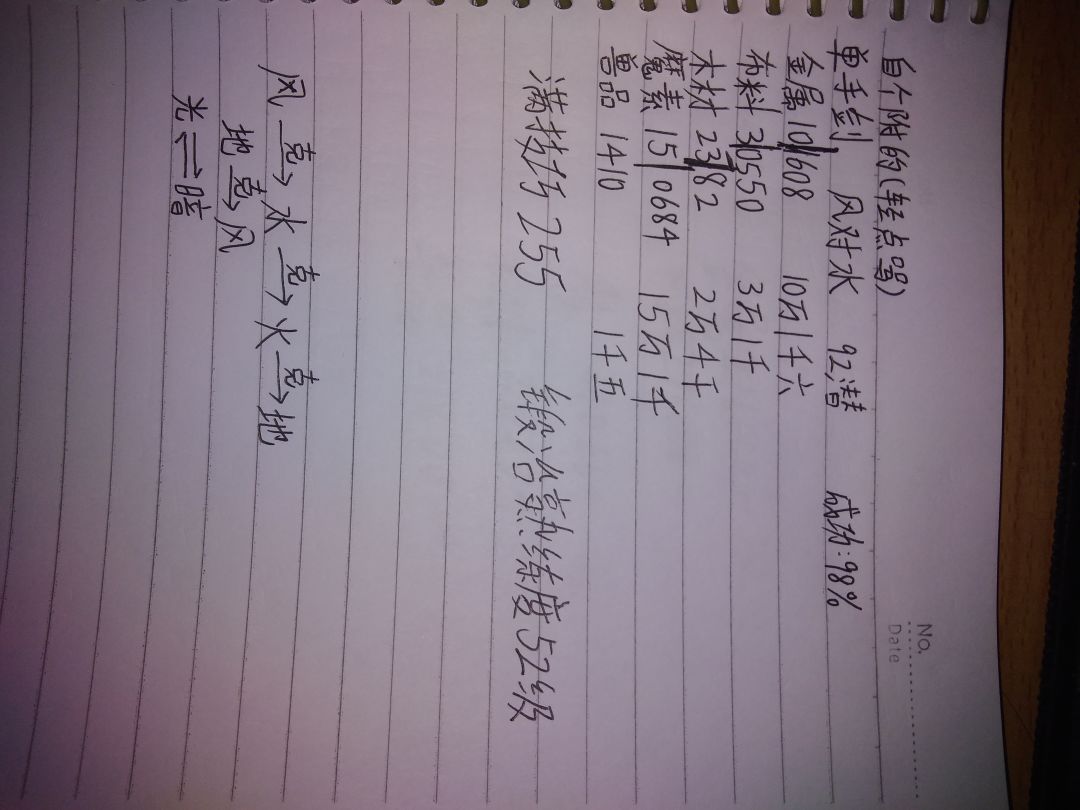 No.
Date
自个附的(轻点骂)
单手剑 风对水 92潜 成功:98%
金属 101608 10万1千六
布料 30550 3万1千
木材 23182 2万4千
魔素 150684 15万1千
兽品 1410 1千五
满技巧255 锻冶熟练度52级
风 克→ 水 克→ 火 克→ 地
地 克→ 风
光 ⇌ 暗